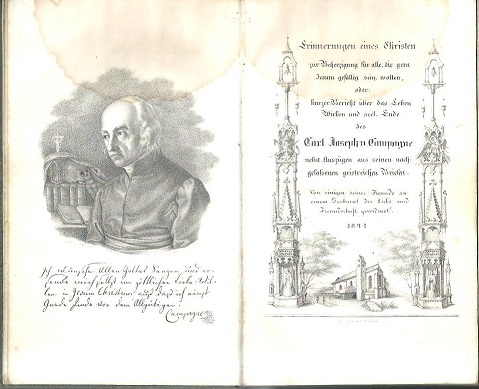 Ich wünsche Allen Gottes Seegen und
in Jesum Christum auf daß ich einst
Gnade finde vor dem Allgütigen.
Campagne
Erinnerungen eines Christen
zur Beherzigung für alle, die gern
Jesum gefällig sein wollen,
oder
kurzer Bericht über das Leben
Wirken und seel. Ende
des
Carl Joseph v Campagne
nebst Auszügen aus seinen nach-
gelassenen geistreichen Briefen.
Von einigen seiner Freunde zu
einem Denkmal der Liebe und
Freundschaft gewidmet.
1842